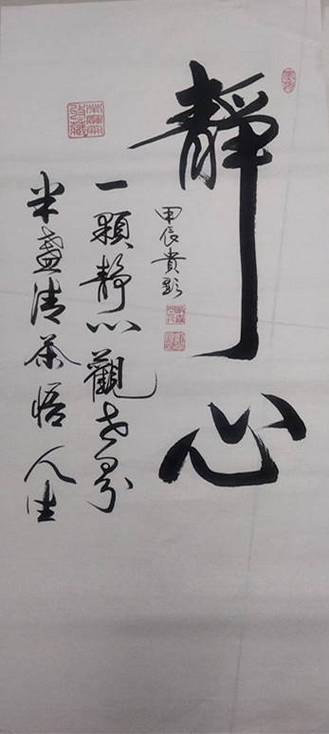 靜心
甲辰貴彭
一顆靜心觀世界
半盞清茶悟人生